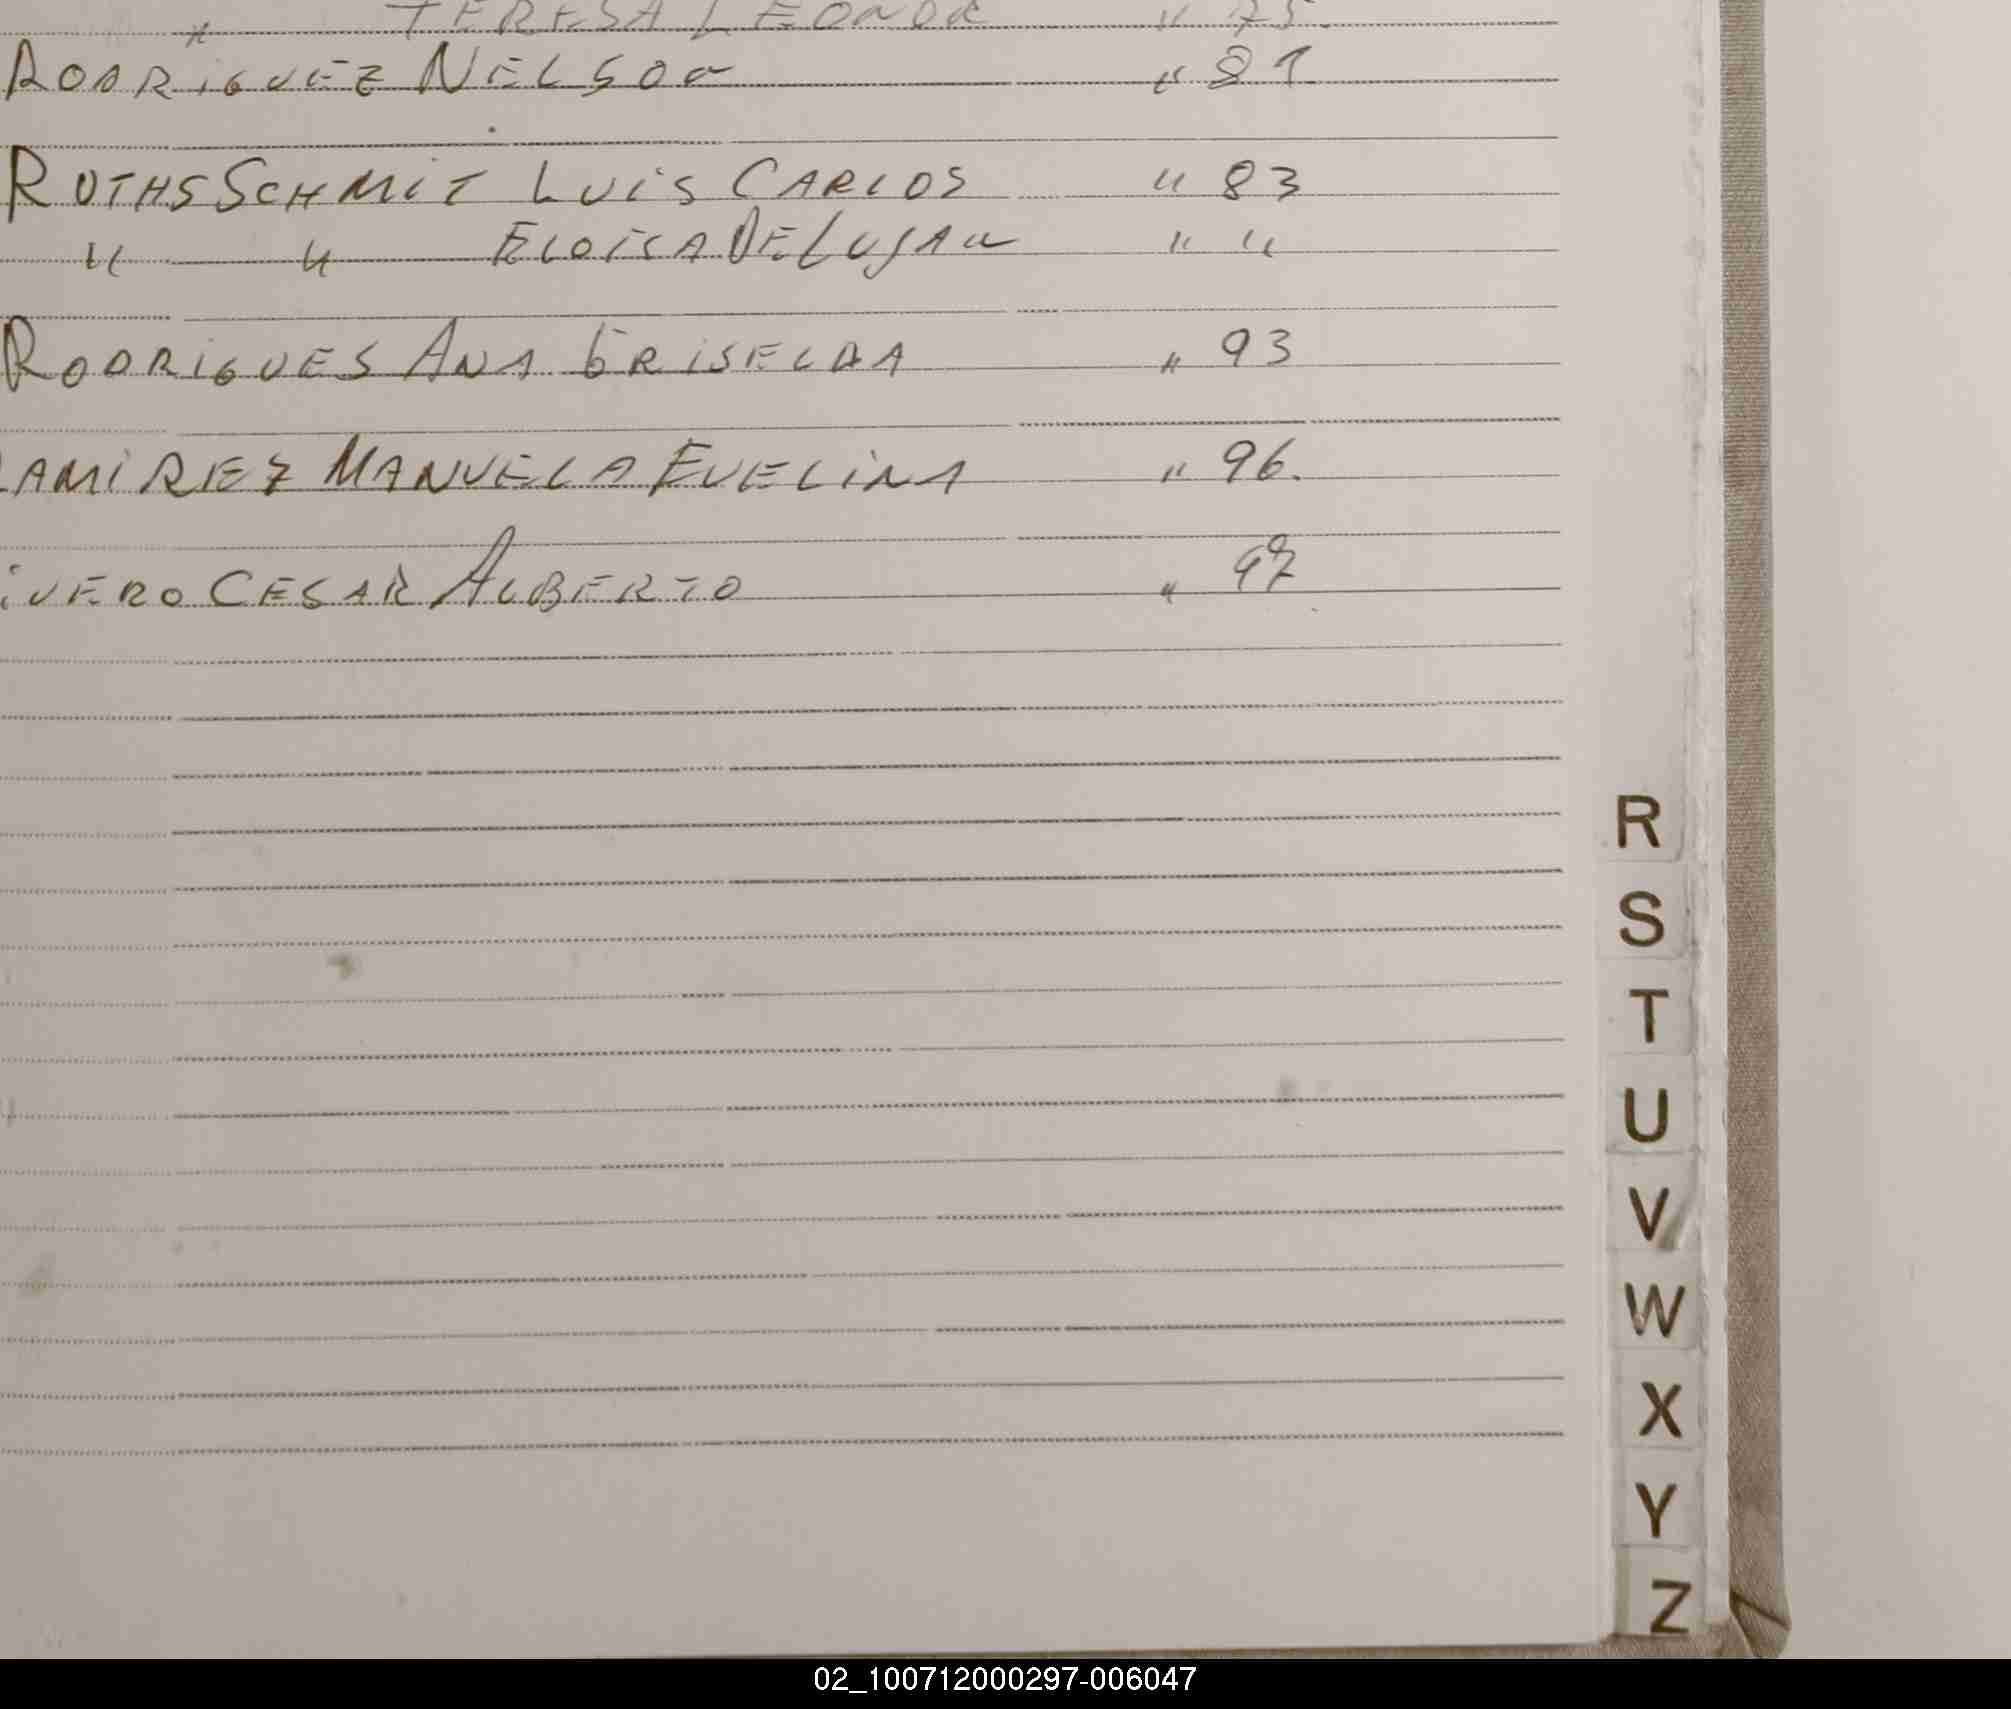 " TERESA LEONOR " 75.
RODRIGUEZ NELSON " 81
ROTHSSCHMIT LUIS CARLOS " 83
" " ELOISA DE LUJAN " "
RODRIGUES ANA GRISELDA " 93
RAMIREZ MANUELA EVELINA " 96.
IVERO CESAR ALBERTO " 97
R
S
T
U
V
W
X
Y
Z
02_100712000297-006047